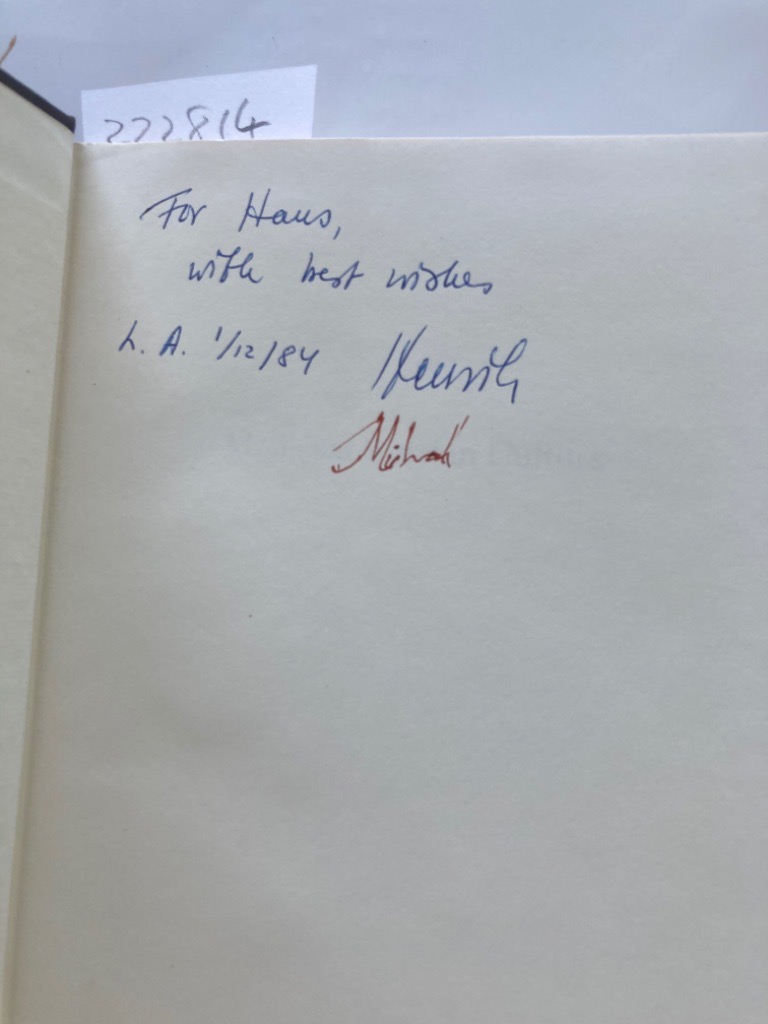 222814
For Hans,
with best wishes
L. A. 1/12/84 Henrik
Michael